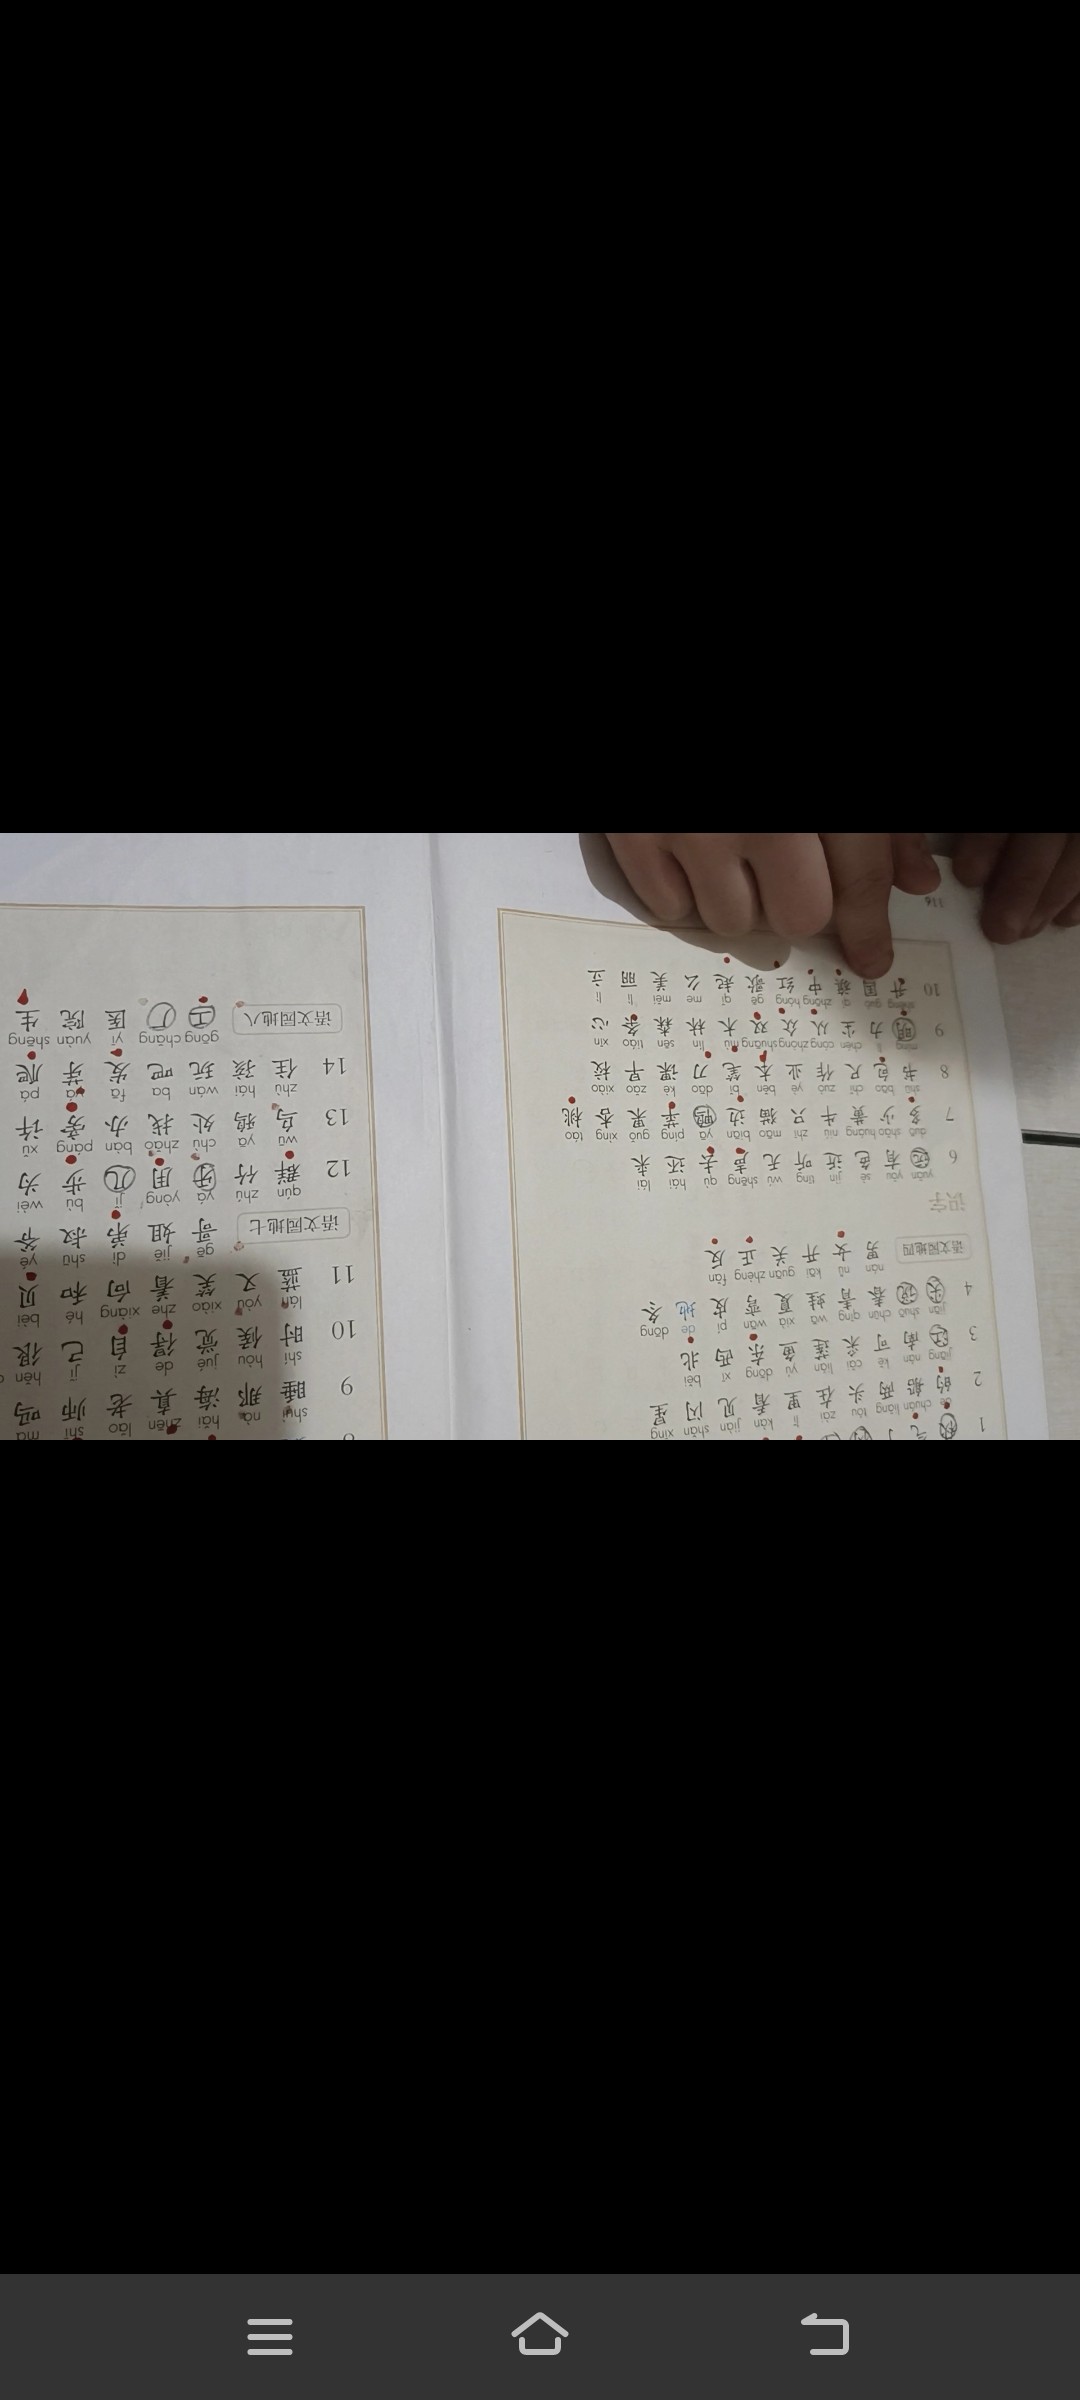 1 秋 气 了
de chuán liǎng tóu zài lǐ kàn jiàn shǎn xīng
2 的 船 两 头 在 里 看 见 闪 星
jiāng nán kě cǎi lián yú dōng xī běi
3 江 南 可 采 莲 鱼 东 西 北
jiān shuō chūn qīng wā xià wān pí de dōng
4 尖 说 春 青 蛙 夏 弯 皮 地 冬
nán nǚ kāi guān zhèng fǎn
语文园地四 男 女 开 关 正 反
识字
yuǎn yǒu sè jìn tīng wú shēng qù hái lái
6 远 有 色 近 听 无 声 去 还 来
duō shǎo huáng niú zhī māo biān yā píng guǒ xìng táo
7 多 少 黄 牛 只 猫 边 鸭 苹 果 杏 桃
shū bāo chǐ zuò yè běn bǐ dāo kè zǎo xiào
8 书 包 尺 作 业 本 笔 刀 课 早 校
míng lì chén cóng zhòng shuāng mù lín sēn tiáo xīn
9 明 力 尘 从 众 双 木 林 森 条 心
shēng guó qí zhōng hóng gē qǐ me měi lì lì
10 升 国 旗 中 红 歌 起 么 美 丽 立
116
shuì nà hǎi zhēn lǎo shī ma
9 睡 那 海 真 老 师 吗
shí hòu jué de zì jǐ hěn
10 时 候 觉 得 自 己 很
lán yòu xiào zhe xiàng hé bèi
11 蓝 又 笑 着 向 和 贝
gē jiě dì shū yé
语文园地七 哥 姐 弟 叔 爷
qún zhú yá yòng jǐ bù wèi
12 群 竹 牙 用 几 步 为
wū yā chù zhǎo bàn páng xǔ
13 乌 鸦 处 找 办 旁 许
zhù hái wán ba fā yá pá
14 住 孩 玩 吧 发 芽 爬
gōng chǎng yī yuàn shēng
语文园地八 工 厂 医 院 生